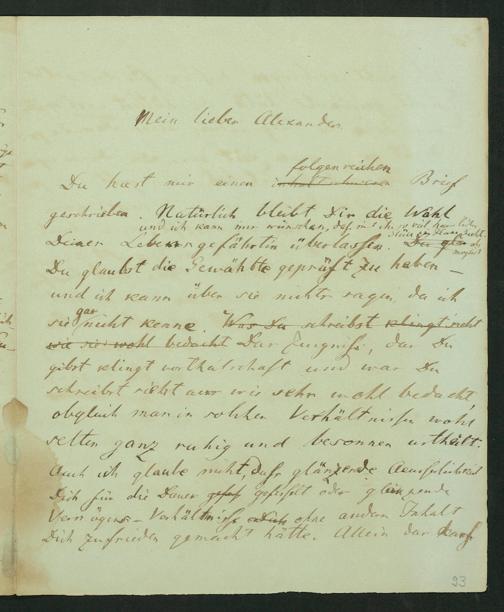 Mein lieber Alexander.
folgenreichen
Du hast mir einen Brief
geschrieben. Natürlich bleibt Dir die Wahl
und ich kann nur wünschen, daß
Deiner Lebensgefährtin überlassen.
Du glaubst die Gewählte geprüft zu haben –
und ich kann über sie nichts sagen, da ich
gar
sie nicht kenne. Was Du schreibst klingt nicht
wie sie wohl bedacht Das Zeugniß, das Du
gibst klingt vortheilhaft und was Du
schreibst sieht aus wie sehr wohl bedacht,
obgleich man in solchen Verhältnissen wohl
selten ganz ruhig und besonnen urtheilt.
Auch ich glaube nicht, daß glänzende
Dich für die Dauer gefesselt oder glänzende
Vermögens-Verhältnisse ohne andern Inhalt
Dich zufrieden gemacht hätte. Allein das darf
93